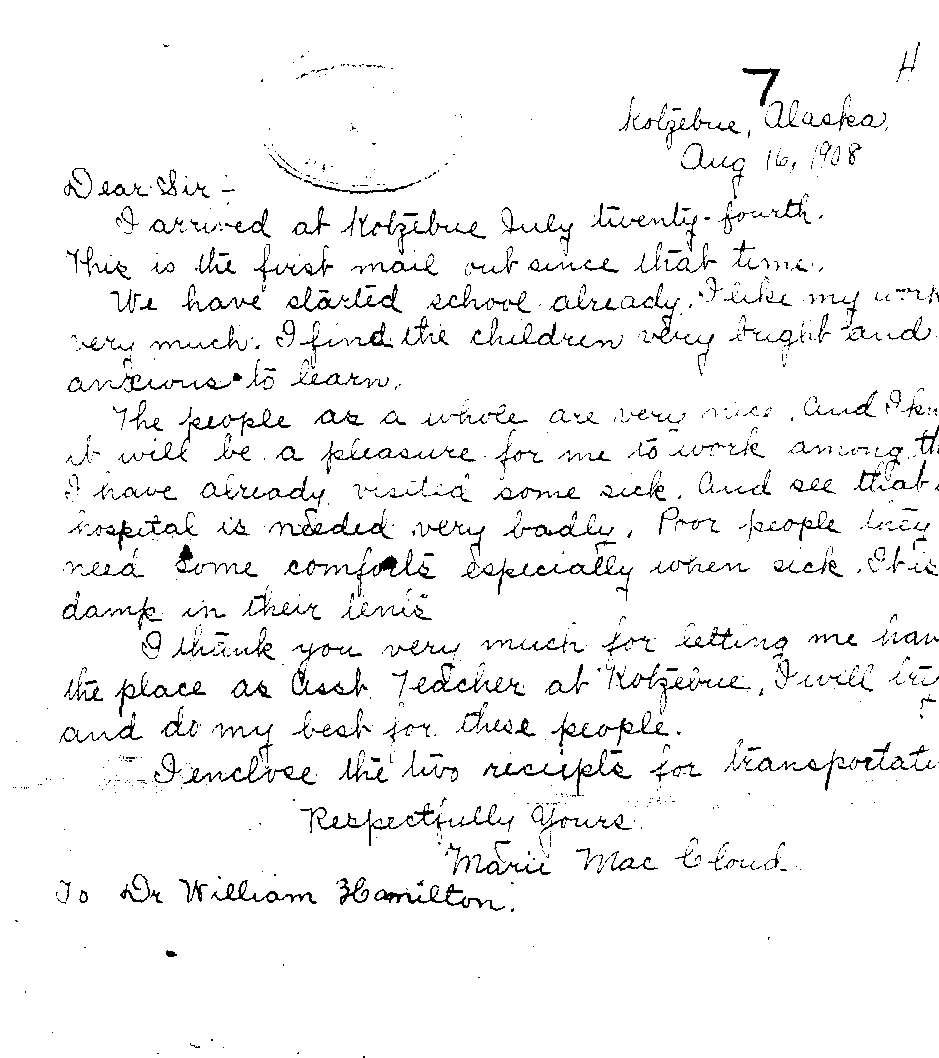 H
7
Kotzebue, Alaska,
Aug 16, 1908
Dear Sir -
I arrived at Kotzebue July twenty-fourth.
This is the first mail out since that time.
We have started school already. I like my work
very much. I find the children very bright and
anxious to learn.
The people as a whole are very nice. And I kn
it will be a pleasure for me to work among th
I have already visited some sick. And see that
hospital is needed very badly. Poor people they
need some comforts especially when sick. It is
damp in their tents
I thank you very much for letting me hav
the place as Asst. Teacher at Kotzebue. I will try
and do my best for these people.
I enclose the two reciepts for transportati
Respectfully Yours
Marie Mac Cloud.
To Dr William Hamilton.